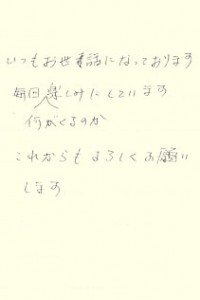 いつもお世話になっております
毎回楽しみにしています
何がくるのか
これからもよろしくお願い
します